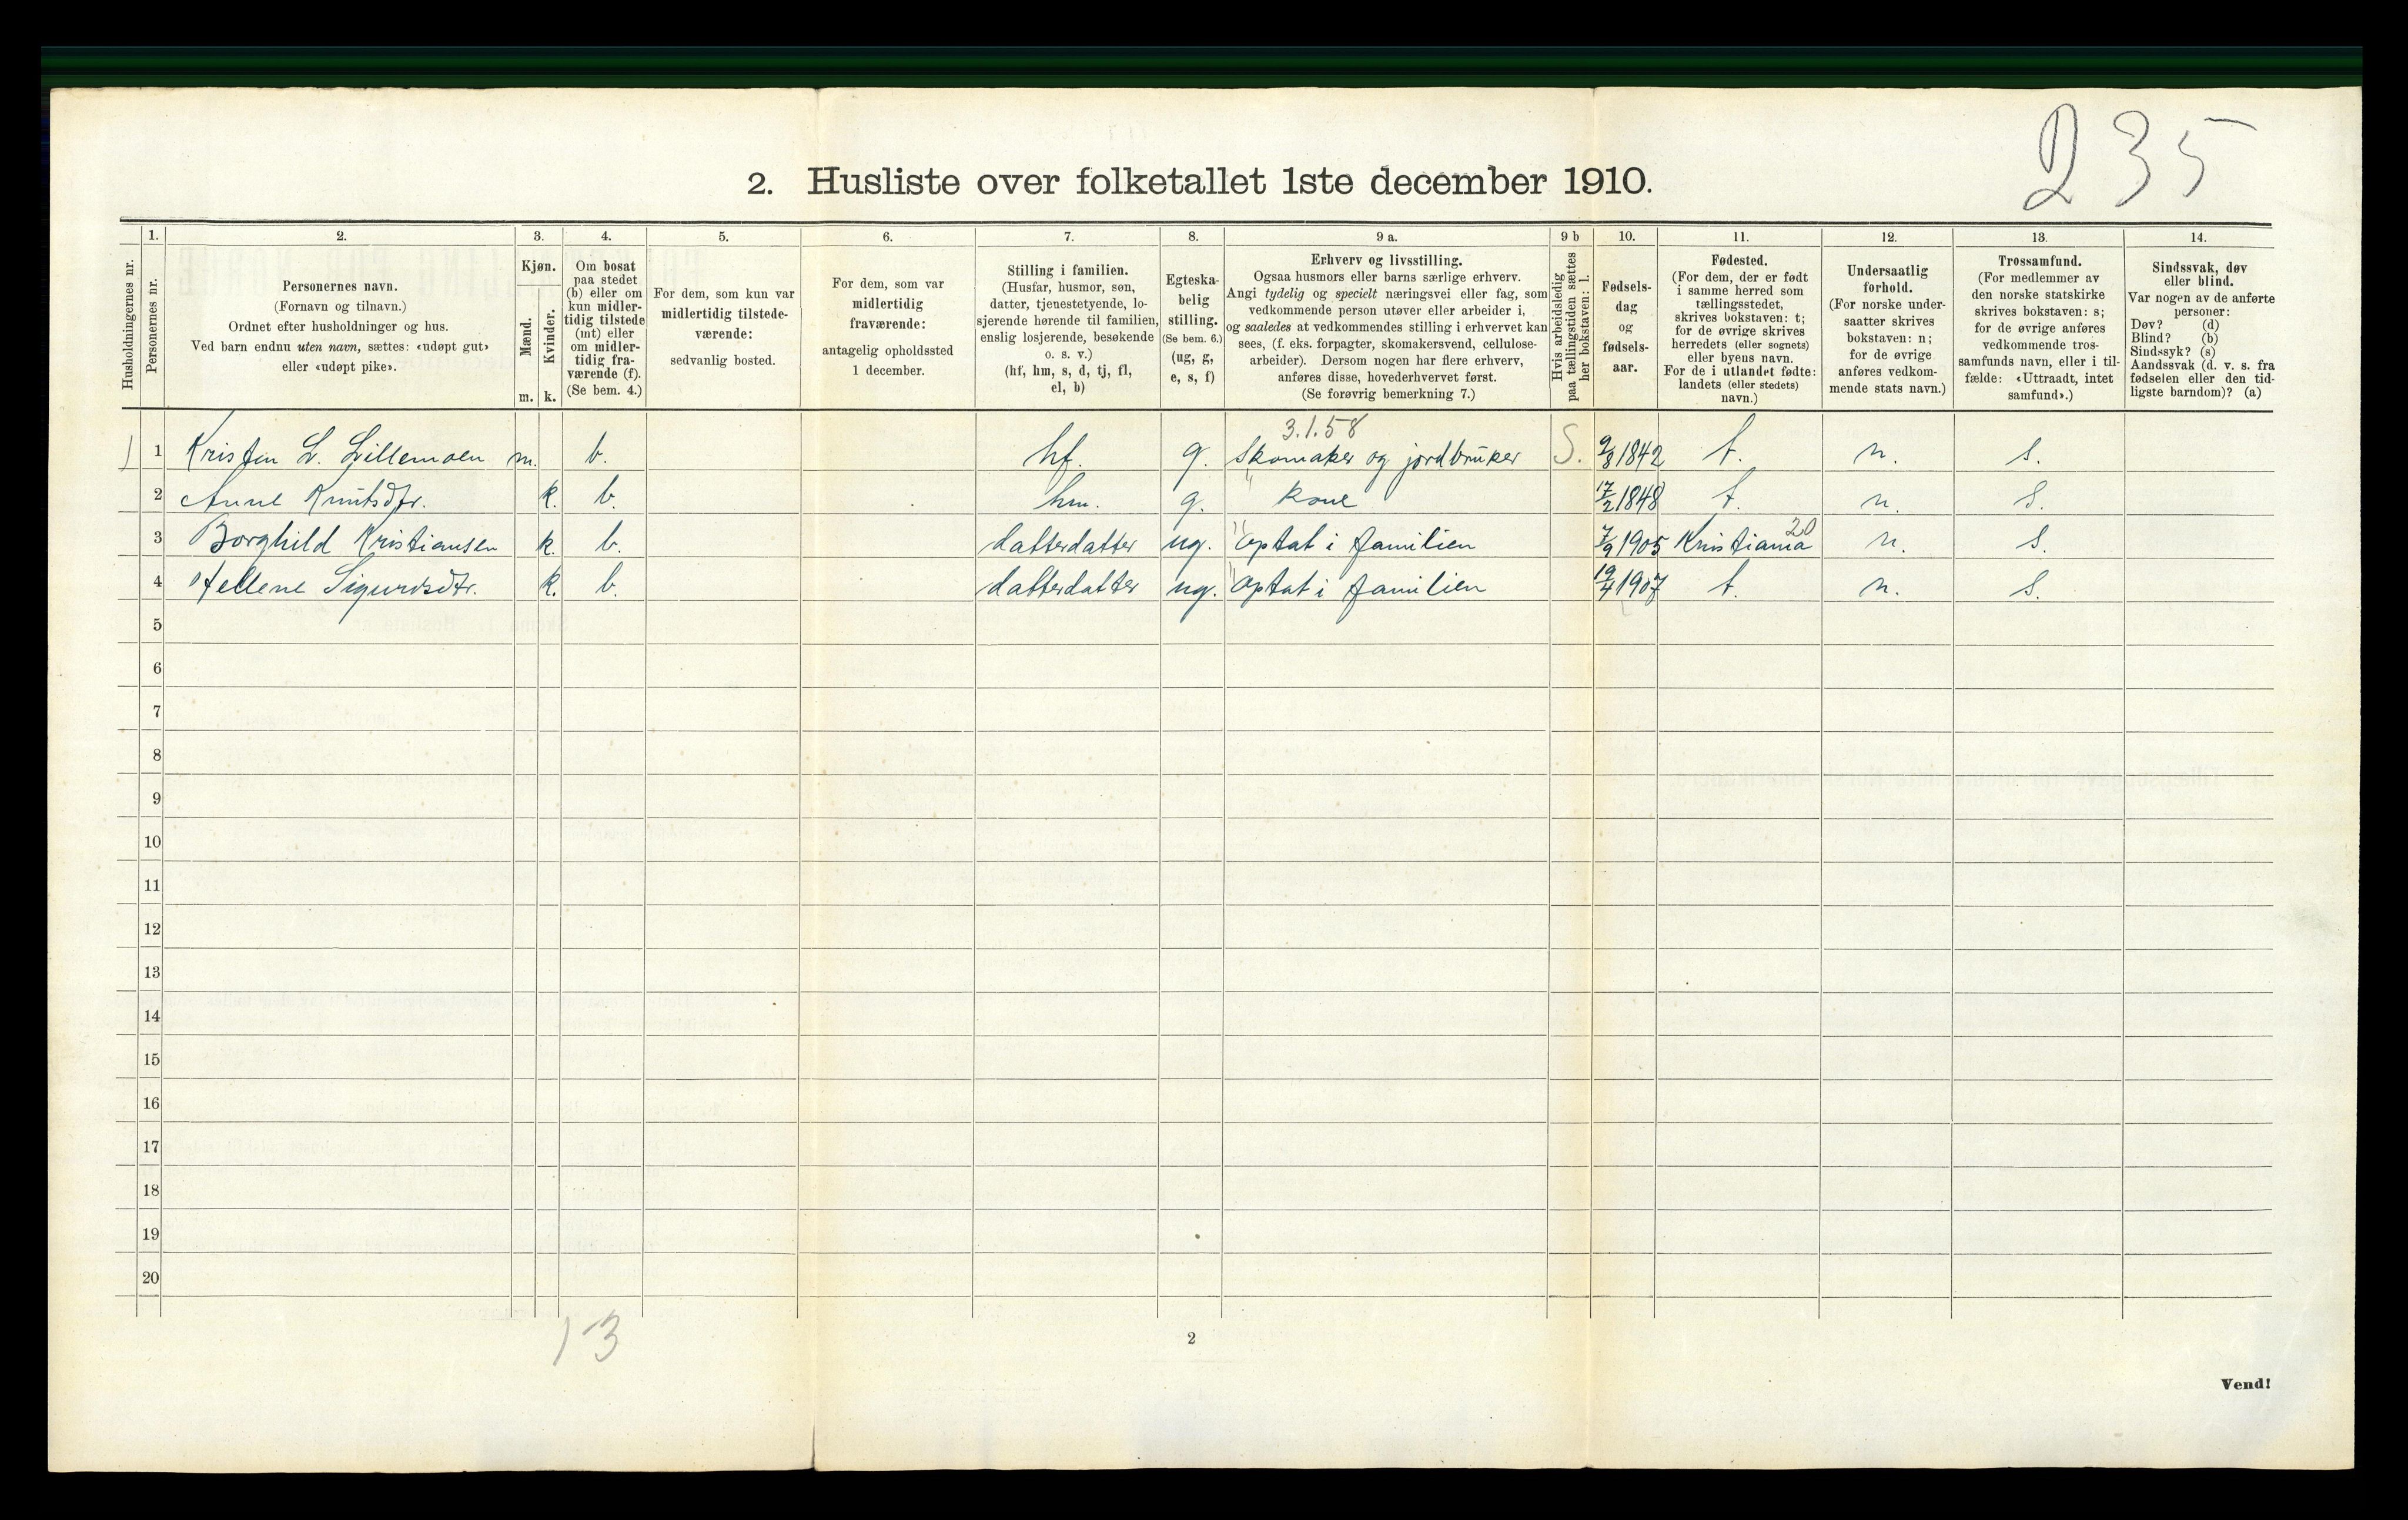 235
2. Husliste over folketallet 1ste december 1910.
Husholdningernes nr.
1.
Personernes nr.
2.
Personernes navn.
(Fornavn og tilnavn.)
Ordnet efter husholdninger og hus.
Ved barn endnu uten navn, sættes: «udøpt gut»
eller «udøpt pike».
3.
Kjøn.
Mænd.
Kvinder.
m. k.
4.
Om bosat
paa stedet
(b) eller om
kun midler-
tidig tilstede
(mt) eller
om midler-
tidig fra-
værende (f).
(Se bem. 4.)
5.
For dem, som kun var
midlertidig tilstede-
værende:
sedvanlig bosted.
6.
For dem, som var
midlertidig
fraværende:
antagelig opholdssted
1 december.
7.
Stilling i familien.
(Husfar, husmor, søn,
datter, tjenestetyende, lo-
sjerende hørende til familien,
enslig losjerende, besøkende
o. s. v.)
(hf, hm, s, d, tj, fl,
el, b)
8.
Egteska-
belig
stilling.
(Se bem. 6.)
(ug, g,
e, s, f)
9 a.
Erhverv og livsstilling.
Ogsaa husmors eller barns særlige erhverv.
Angi tydelig og specielt næringsvei eller fag, som
vedkommende person utøver eller arbeider i,
og saaledes at vedkommendes stilling i erhvervet kan
sees, (f. eks. forpagter, skomakersvend, cellulose-
arbeider). Dersom nogen har flere erhverv,
anføres disse, hovederhvervet først.
(Se forøvrig bemerkning 7.)
9 b
Hvis arbeidsledig
paa tællingstiden sættes
her bokstaven: l.
10.
Fødsels-
dag
og
fødsels-
aar.
11.
Fødested.
(For dem, der er født
i samme herred som
tællingsstedet,
skrives bokstaven: t;
for de øvrige skrives
herredets (eller sognets)
eller byens navn.
For de i utlandet fødte:
landets (eller stedets)
navn.)
12.
Undersaatlig
forhold.
(For norske under-
saatter skrives
bokstaven: n;
for de øvrige
anføres vedkom-
mende stats navn.)
13.
Trossamfund.
(For medlemmer av
den norske statskirke
skrives bokstaven: s;
for de øvrige anføres
vedkommende tros-
samfunds navn, eller i til-
fælde: «Uttraadt, intet
samfund».)
14.
Sindssvak, døv
eller blind.
Var nogen av de anførte
personer:
Døv? (d)
Blind? (b)
Sindssyk? (s)
Aandssvak (d. v. s. fra
fødselen eller den tid-
ligste barndom)? (a)
3.1.58
1 1 Kristen L. Lillemoen m. b. hf. g. Skomaker og jordbruker S. 9/3 1842 t. n. s.
2 Anne Knutsdtr. k. b. hm. g. " kone 17/2 1848 t. n. s.
20
3 Borghild Kristiansen k. b. datterdatter ug. " optat i familien 7/9 1905 Kristiania n. s.
4 Hellene Sigurdsdtr. k. b. datterdatter ug. " optat i familien 19/4 1907 t. n. s.
5
6
7
8
9
10
11
12
13
14
15
16
17
18
19
20
1-3
2
Vend!